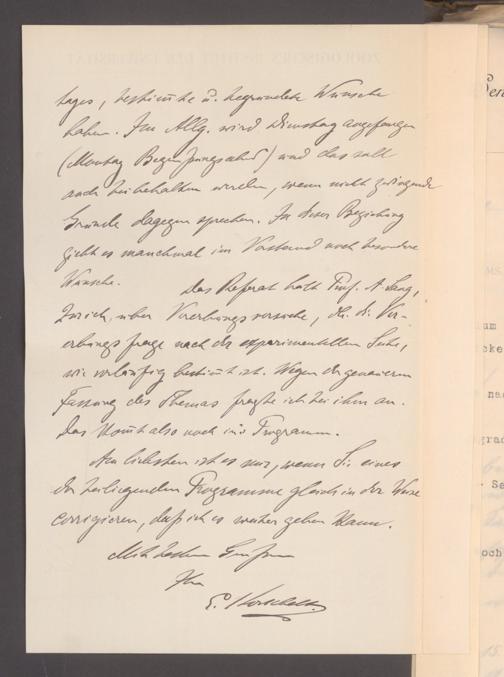 tages, bestim̄te u. begründete Wünsche
haben. Im Allg. wird Dienstag angefangen
(Montag Begrüssungsabend) und das soll
auch beibehalten werden, wenn nicht zwingende
Gründe dagegen sprechen. In dieser Beziehung
giebt es manchmal im Vorstand noch besondere
Wünsche. Das Referat hält Prof. A. Lang,
Zürich, über Vererbungsversuche, d.h. die Ver-
erbungsfrage nach der experimentellen Seite,
wie vorläufig bestim̄t ist. Wegen der genaueren
Fassung des Themas fragte ich bei ihm an.
Das kom̄t also noch in's Programm.
Am liebsten ist es mir, wenn Sie eines
der beiliegenden Programme gleich in der Weise
corrigieren, daß ich es weiter geben kann.
Mit besten Grüßen
Ihr
E. Korschelt.